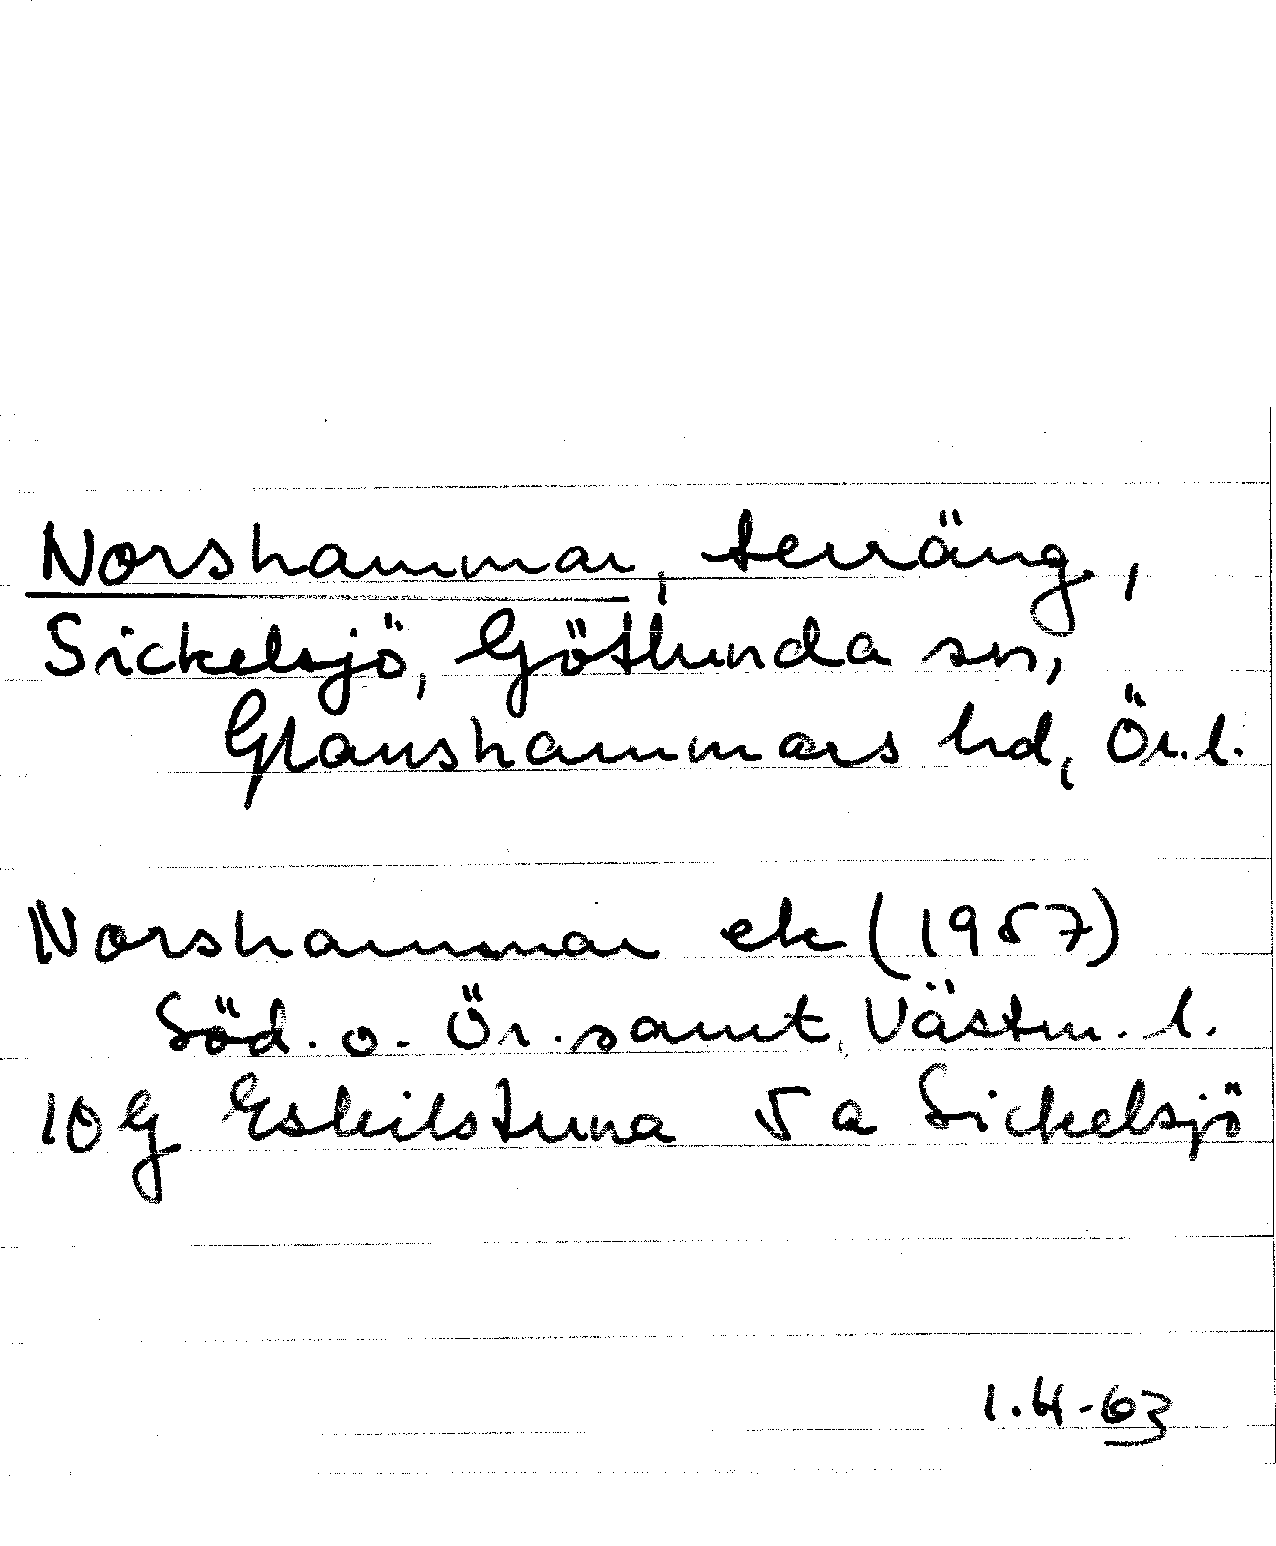 Norshammar, terräng,
Sickelsjö, Götlunda sn,
Glanshammars hd, Ör.l.
Norshammar ek (1957)
Söd. o. Ör. samt Västm. l.
10 G Eskilstuna 5 a Sickelsjö
1.4-63